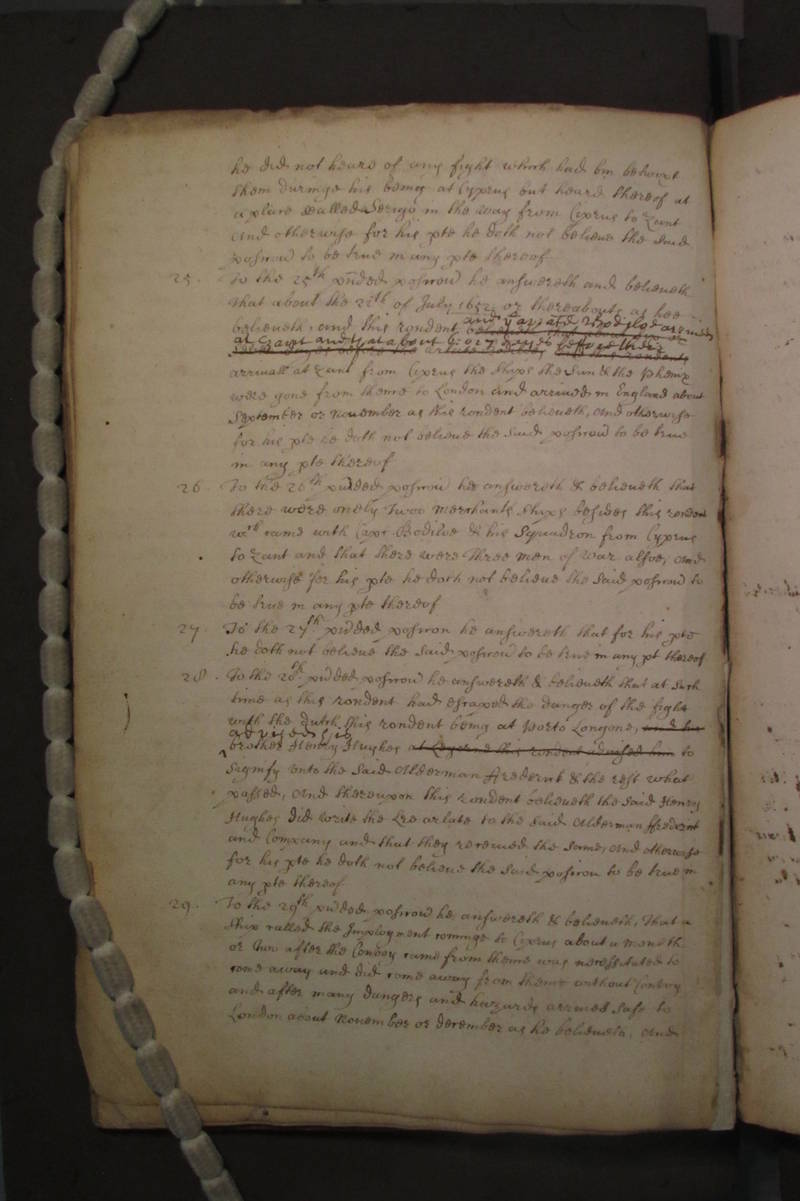 he did not heare of any fight which had bin betwixt
them duringe his being at Cyprus but heard thereof at
a place called Serigo in the way from Cyprus to Zant
And otherwise for his pte he doth not beleive the said
posicion to be true in any pte thereof
25. To the 25th posicion he answereth and beleiveth
that about the 22th of July 1652, or thereabouts as hee
beleiveth, and this rendent and Captaine Bodiloe arrived
at Zant and that about days before their
arrivall at Zant from Cyprus the Shipps the Sun & the Phenix
were gone from thence to London and arrived in England about
September or November as this rondent beleiveth, And otherwise
for his pte he doth not beleive the said posicion to be true
in any pte thereof
26. To the 26th posicion he answereth & beleiveth that
there were onely Twoo Merchants Shipps besides this rondent
wch came with Capt Bodiloe & his Squadron from Cyprus
to Zant and that there were Three men of War alsoe, And
otherwise for his pte he doth not beleive the said posicion to
be true in any pte thereof
27. To the 27th posicion he answereth that for his pte
he doth not beleive the said posicion to be true in any pt thereof
28. To the 28th posicion he answereth & beleiveth that at such
time as this rondent had escaped the danger of the fight
with the dutch this rondent being at Porto Longone,
advised his
brother Henry Hughes at this rondent advised him to
Signify unto the said Alderman Frederick & the rest what
passed, And thereupon this rondent beleiveth the said Henry
Hughes did write the Lre arlate to the said Alderman Frederick
and Company and that they received the same, And otherwise
for his pte he doth not beleive the said posicion to be true in
any pte thereof
29. To the 29th posicion he answereth & beleiveth, That a
Ship called the Imployment cominge to Cyprus about a moneth
or two after the Convoy came from thence was necessitated to
come away and did come away from thence without Convoy
and after many dangers and hazards arrived safe to
London about November or december as he beleiveth, And